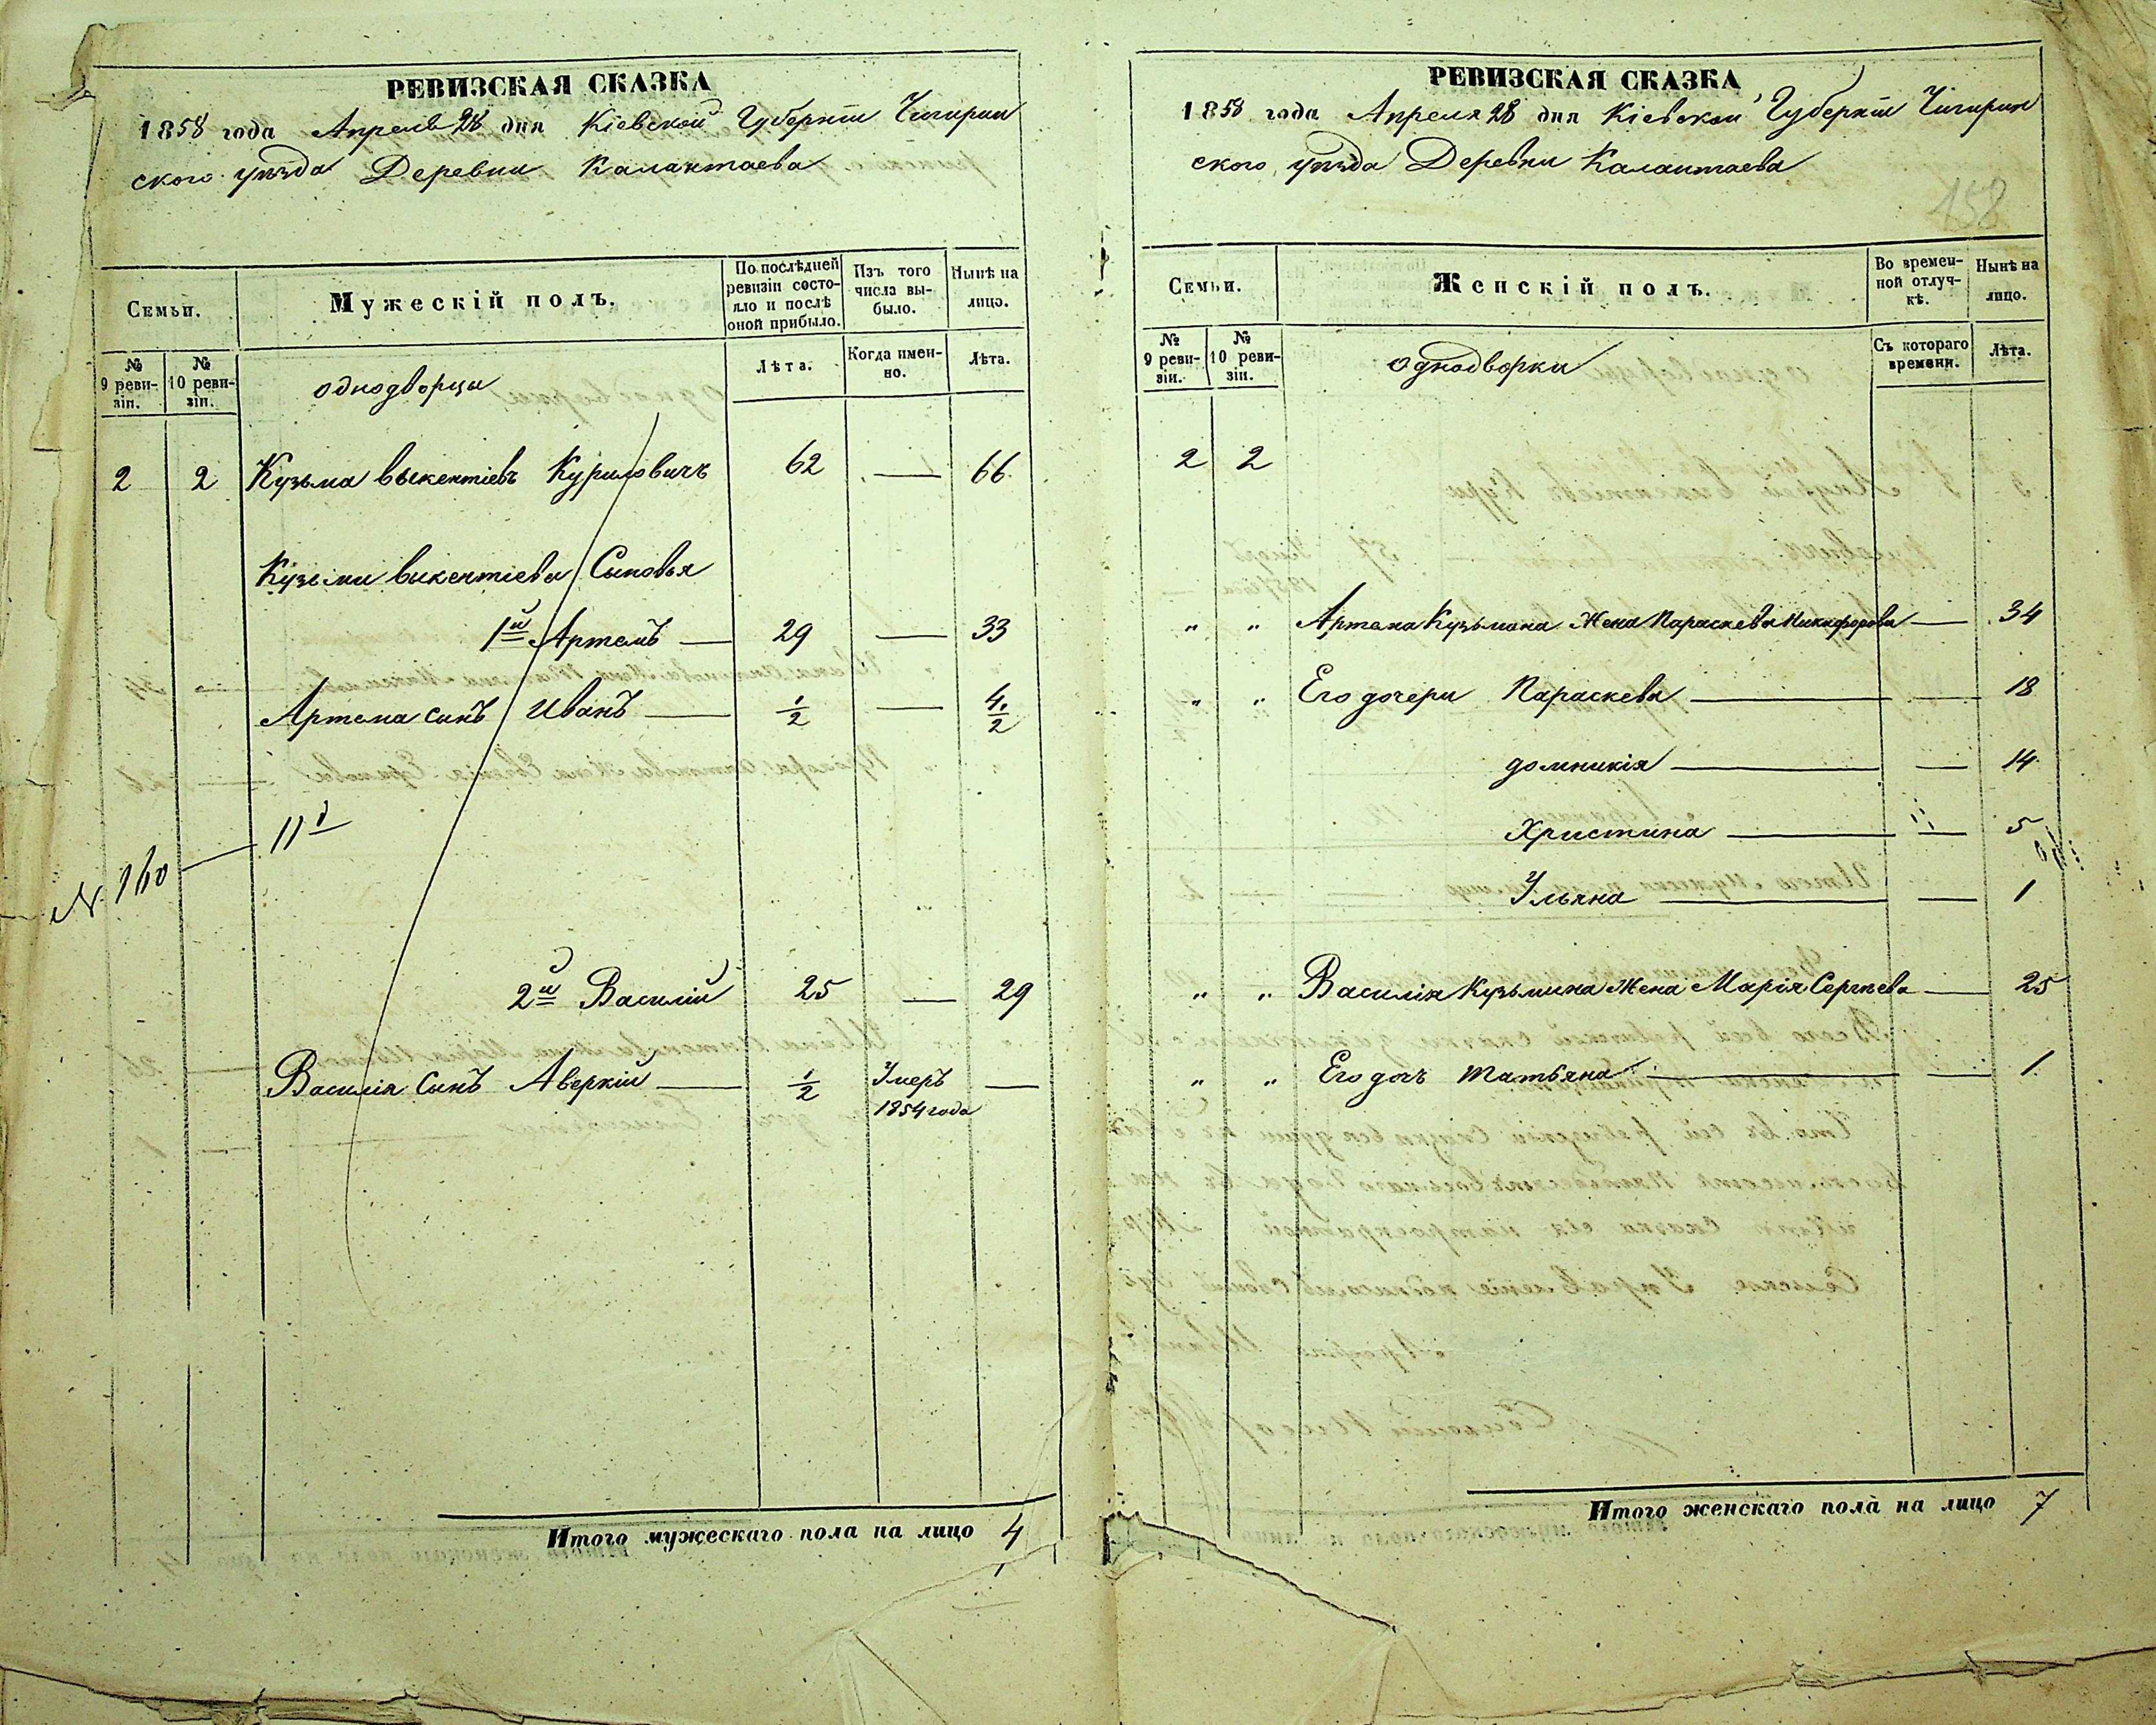 РЕВИЗСКАЯ СКАЗКА
1858 года Апреля 28 дня Кіевской Губерніи Чигирин
ского уѣзда Деревни Калантаева
Семьи.
Мужескій полъ.
По послѣдней ревизіи состояло и послѣ оной прибыло.
Изъ того числа выбыло.
Нынѣ на лицо.
№ 9 ревизіи.
№ 10 ревизіи.
однодворцы
Лѣта.
Когда именно.
Лѣта.
2 2 Кузьма викентіевъ Куриловичъ 62 — 66
Кузьмы викентіева Сыновья
1й Артемъ — 29 — 33
Артема сынъ Иванъ — 1/2 — 4 1/2
N. 160 —
2й Василій 25 — 29
Василія Сынъ Аверкій — 1/2 Умеръ —
1854 года
Итого мужескаго пола на лицо 4
РЕВИЗСКАЯ СКАЗКА
1858 года Апреля 28 дня Кіевской Губерніи Чигирин
ского уѣзда Деревни Калантаева
158
Семьи.
Женскій полъ.
Во временной отлучкѣ.
Нынѣ на лицо.
№ 9 ревизіи.
№ 10 ревизіи.
однодворки
Съ котораго времени.
Лѣта.
2 2
" " Артема Кузьмина Жена Параскева Никифорова — 34
" " Его дочери Параскева — — 18
домникія — — 14
Христина — — 5
Ульяна — — 1
" " Василія Кузьмина Жена Марія Сергѣева — 25
" " Его дочь Татьяна — — 1
Итого женскаго пола на лицо 7